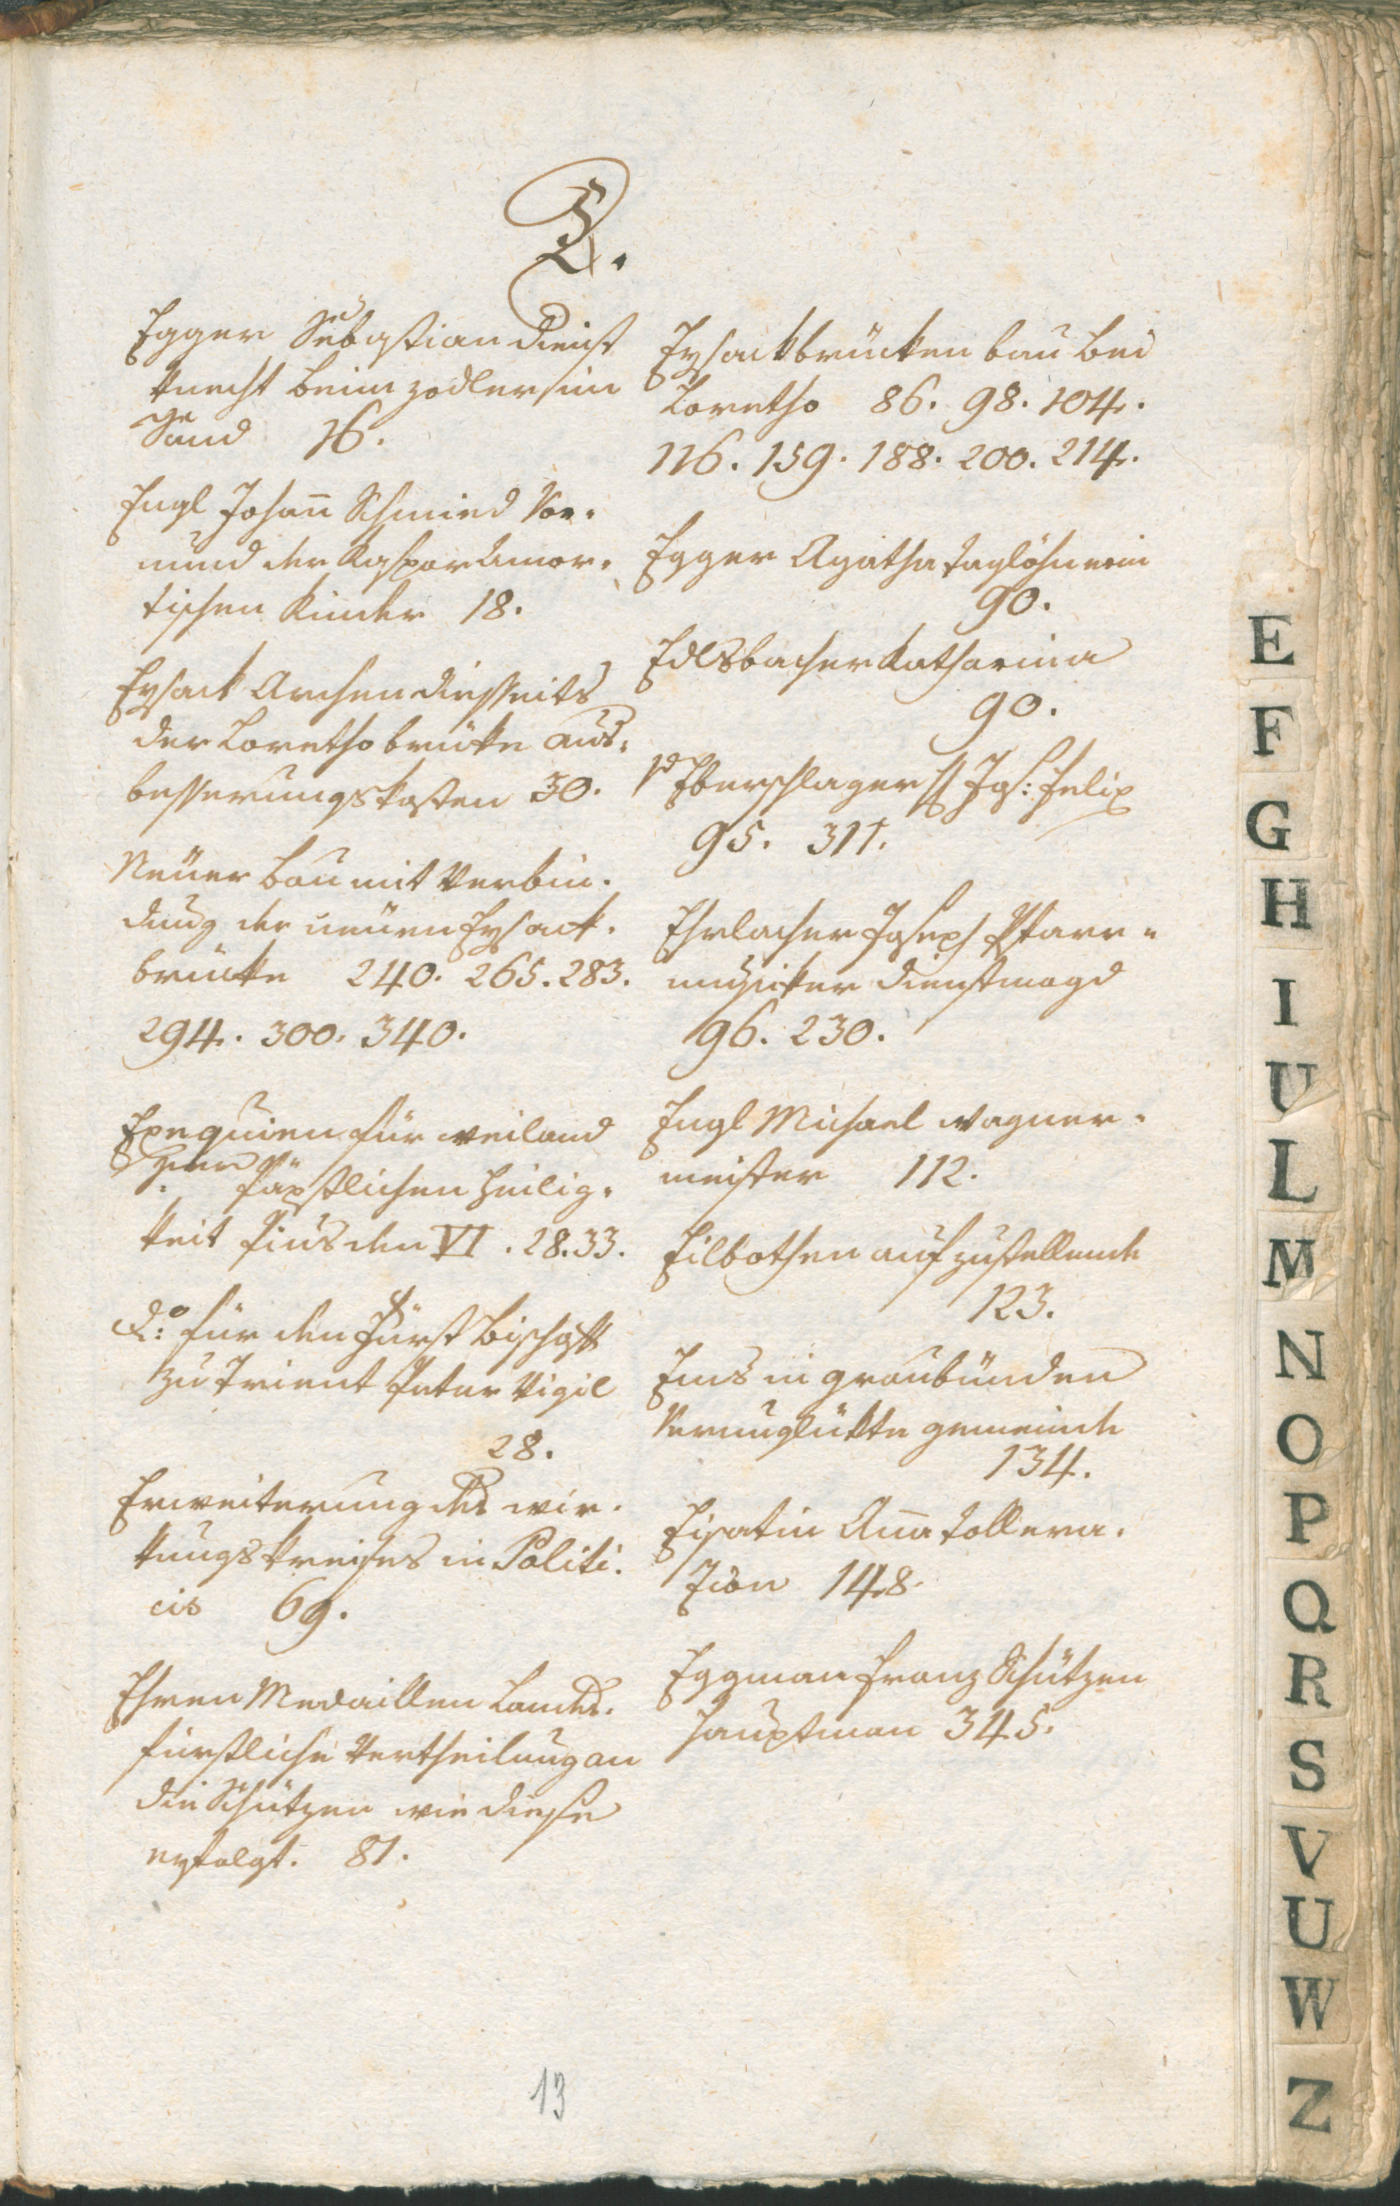 E.
Egger Sebastian Dienst
knecht beim Zodler im
Sand 16.
Engl Johann Schmied Vor-
mund der Kaspar Amor-
tischen Kinder 18.
Eysack Archen diesseits
der Loretho brücke aus-
besserungskosten 30.
Neüer Bau mit Verbin-
dung der neüen Eysack-
brücke 240. 265. 283.
294. 300. 340.
Exequien für weiland
Päpstlichen Heilig-
keit Pius den VI. 28. 33.
do: für den Fürst Bischoff
zu Trient Peter Vigil
28.
Erweiterung des wir-
kungskreises in Politi-
cis 69.
Ehren Medaillen Landes-
fürstliche Vertheilung an
die Schützen wie diese
erfolgt. 81.
Eysackbrücken bau bei
Loretho 86. 98. 104.
116. 159. 188. 200. 214.
Egger Agatha Taglöhnerin
90.
Edlsbacher Katharina
90.
Eberschlager Jos: Felix
95. 311.
Ehrlacher Joseph Pfarr-
musiker Dienstmagd
96. 230.
Engl Michael Wagner-
meister 112.
Eilbothen aufzustellende
123.
Ems in Graubünden
Verunglükte Gemeinde
134.
Eisatin Anna Tollera-
zion 148.
Eggman Franz Schützen
Hauptman 345.
13
E
F
G
H
I
U
L
M
N
O
P
Q
R
S
V
U
W
Z